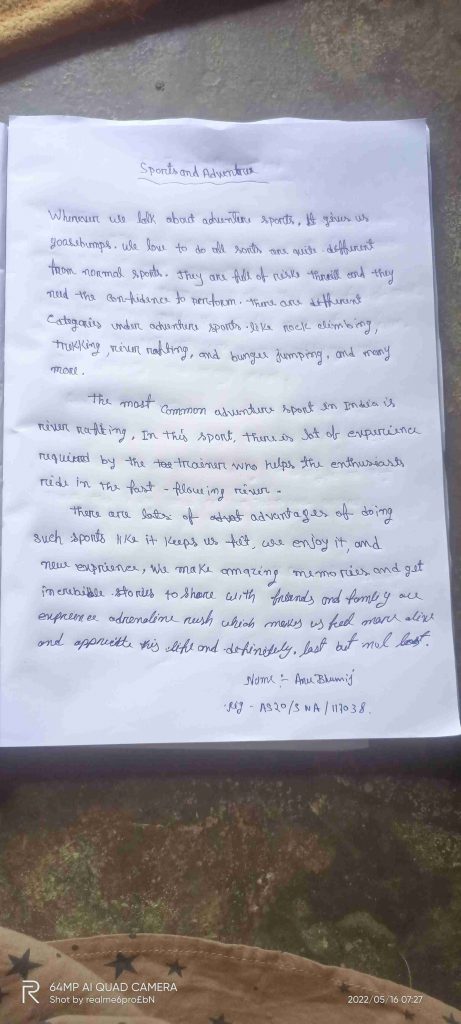 Sports and Adventure
Whenever we talk about adventure sports, It gives us
goassbumps. We love to do all sorts are quite different
from normal sports. They are full of risks thrill and they
need the confidence to perform. There are different
Categories under adventure sports. like rock climbing,
trekking, river rafting, and bungee jumping, and many
more.
The most common adventure sport in India is
river rafting, In this sport, there is lot of experience
required by the trainer who helps the enthusiasts
ride in the fast - flowing river.
There are lots of advantages of doing
such sports like it keeps us fit, we enjoy it, and
new exprience, We make amazing memories and get
incredible stories to share with friends and family
adrenaline rush which makes us feel more alive
and this life and definitely, last but not least.
Name :- Anu Bhumij
AS20/SNA/117038.
64MP AI QUAD CAMERA
Shot by realme6pro£bN
2022/05/16 07:27